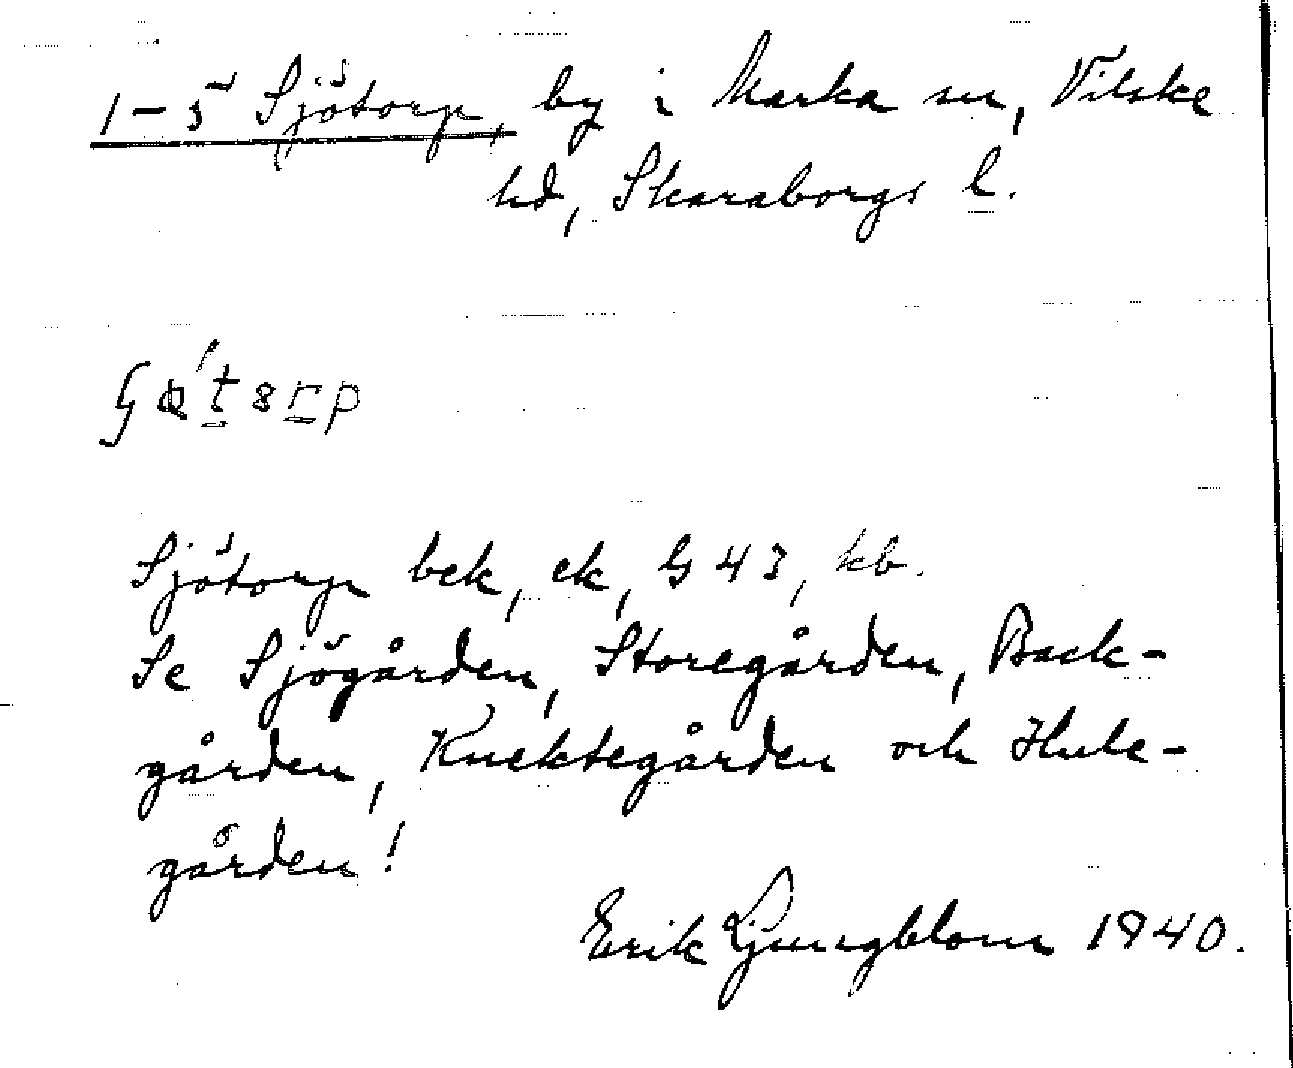 1-5 Sjötorp, by i Marka sn, Vilske
hd, Skaraborgs l.
Sjötorp bek, ek, G 43, kb.
Se Sjögården, Storegården, Back-
gården, Knektegården och Hule-
gården!
Erik Ljungblom 1940.